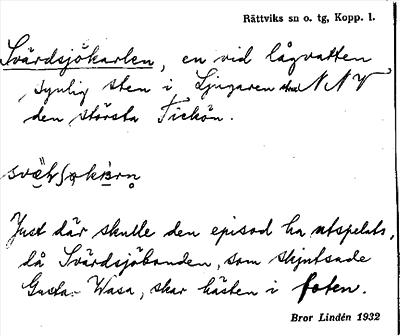 Rättviks sn o. tg, Kopp. l.
Svärdsjökarlen, en vid lågvatten
synlig sten i Ljugaren NNV
den största Tickön.
Just där skulle den episod ha utspelats,
då Svärdsjöbonden, som skjutsade
Gustav Wasa, skar hästen i foten.
Bror Lindén 1932